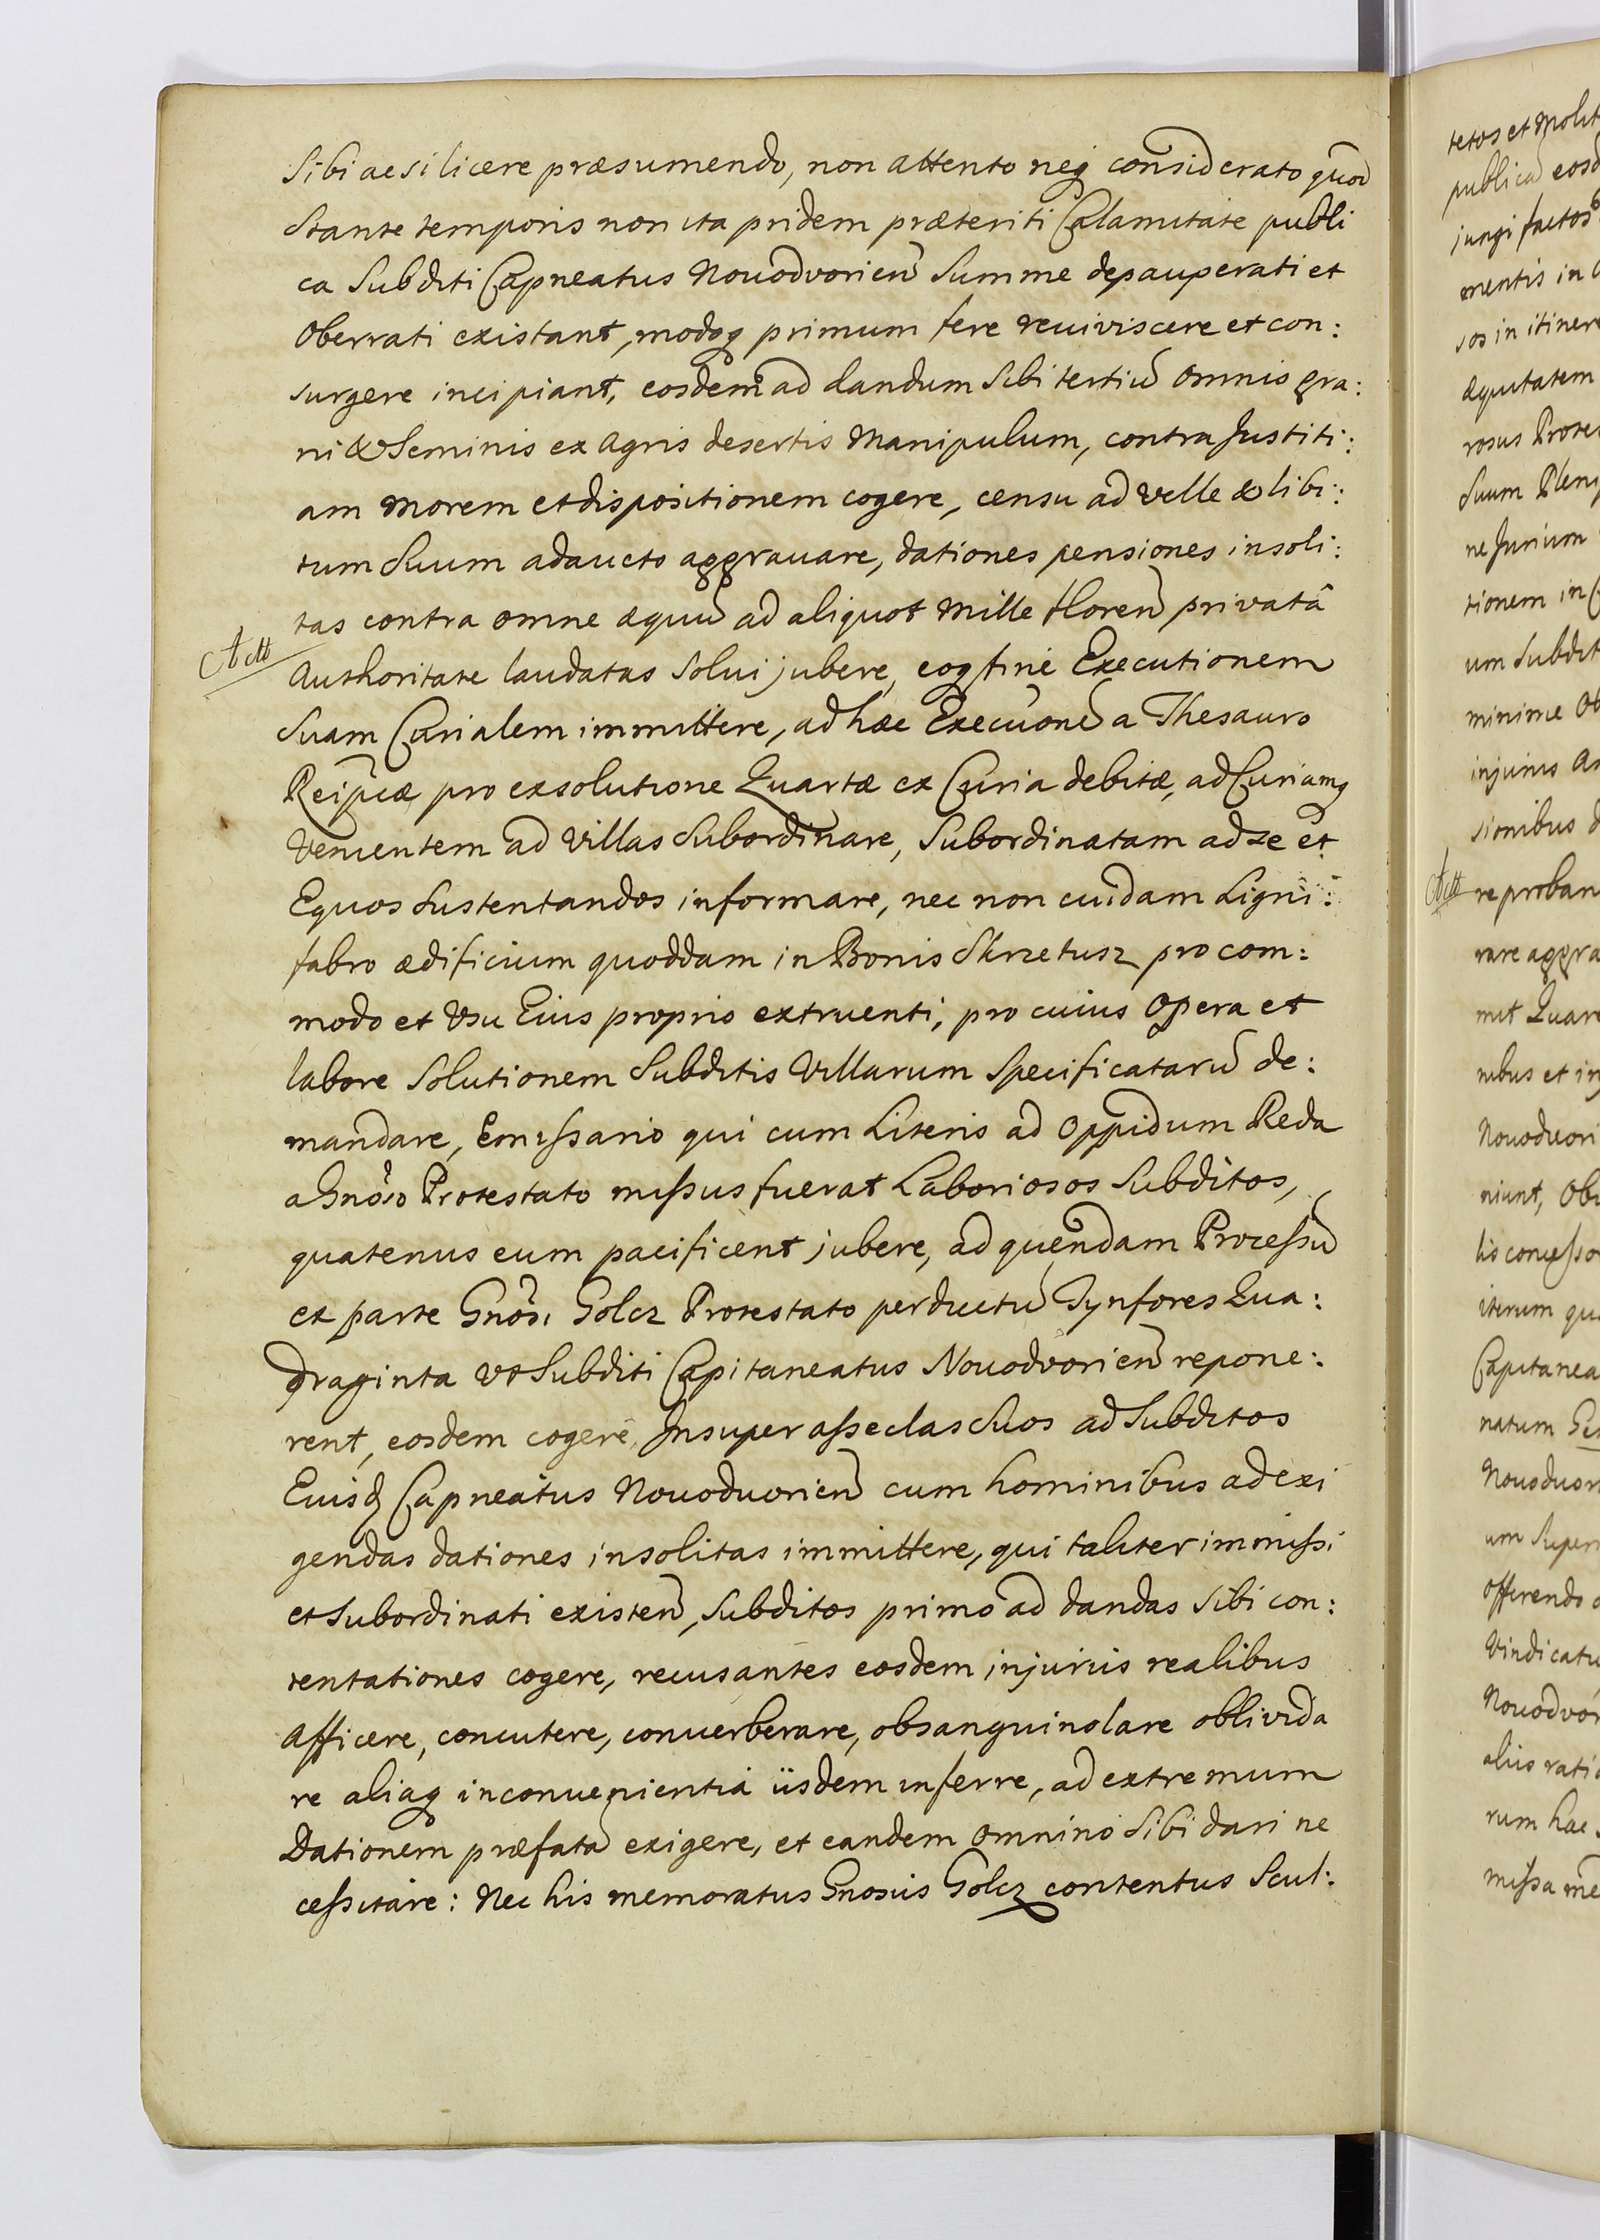 Sibi ac si licere præsumendo, non attento neq considerato quod
Stante temporis non ita pridem præteriti Calamitate publi
ca Subditi Capneatus Nouodvorien Summe depauperati et
Oberrati existant, modoq primum fere reuiviscere et con:
surgere incipiant, eosdem ad dandum Sibi tertiū omnis gra:
ni & Seminis ex Agris desertis Manipulum, contra Justiti:
am morem et dispositionem cogere, censu ad velle & libi:
tum Suum adaucto aggrauare, dationes pensiones insoli:
tas contra omne æquū ad aliquot Mille floren privatâ
Authoritate laudatas Solui jubere, eoq fine Executionem
Suam Curialem immittere, ad hæc Execuōnē a Thesauro
Reipcæ pro exsolutione Quartæ ex Curia debitæ, ad Curiamq
Venientem ad Villas Subordinare, Subordinatam ad se et
Equos Sustentandos informare, nec non cuidam Ligni:
fabro ædificium quoddam in Bonis Skrzetusz pro com:
modo et Vsu Eius proprio extruenti, pro cuius Opera et
labore Solutionem Subditis Villarum Specificatarū de:
mandare, Emissario qui cum Literis ad Oppidum Reda
a Gnōso Protestato missus fuerat Laboriosos Subditos,
quatenus eum pacificent jubere, ad quendam Processū
ex parte Gnōsi Golcz Protestato perductū Tynfores Qua:
draginta vt Subditi Capitaneatus Nouodvorien repone:
rent, eosdem cogere, Insuper asseclas Suos ad Subditos
Euisd Capneatus Nouoduorien cum hominibus ad exi
gendas dationes insolitas immittere, qui taliter immissi
et Subordinati existen, Subditos primo ad dandas Sibi con:
tentationes cogere, recusantes eosdem injuriis realibus
Afficere, concutere, conuerberare, obsanguinolare oblivida
re aliaq inconuenientia iisdem inferre, ad extremum
Dationem præfatā exigere, et eandem Omnino Sibi dari ne
cessitare: Nec his memoratus Gnosus Golcz contentus Scul:
tetos et Molit
publica eosd
jungi factos
mentis in
sos in itinere
æquitatem
rosus Prote
Suum Pleni
ne Jurium
tionem in
um Subdit
minime Ob
injuriis
sionibus
re proban
rare aggra
mit Quare
nibus et in
Nouoduori
niunt, Ob
lis concesso
iterum qu
Capitanea
natum
Nouoduor
um Super
Offerendo
Vindicatu
Nouodvor
aliis rati
rum hac
missa